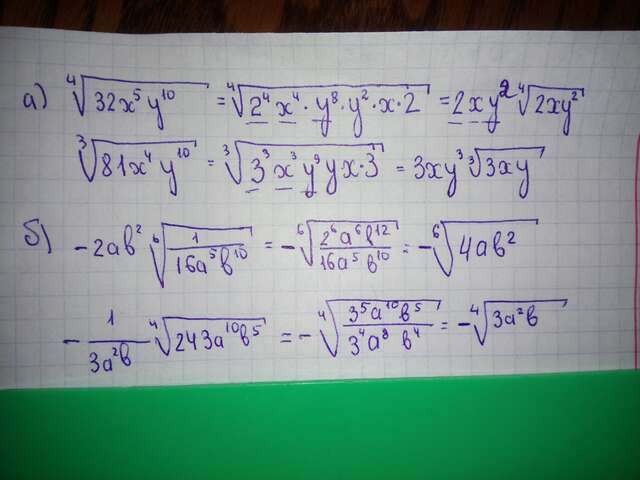 а) ⁴√(32x⁵y¹⁰) = ⁴√(2⁴x⁴·y⁸·y²·x·2) = 2xy² ⁴√(2xy²)
³√(81x⁴y¹⁰) = ³√(3³x³y⁹yx·3) = 3xy³ ³√(3xy)
б) -2ab² ⁶√(1/(16a⁵b¹⁰)) = -⁶√((2⁶a⁶b¹²)/(16a⁵b¹⁰)) = -⁶√(4ab²)
-1/(3a²b) ⁴√(243a¹⁰b⁵) = -⁴√((3⁵a¹⁰b⁵)/(3⁴a⁸b⁴)) = -⁴√(3a²b)